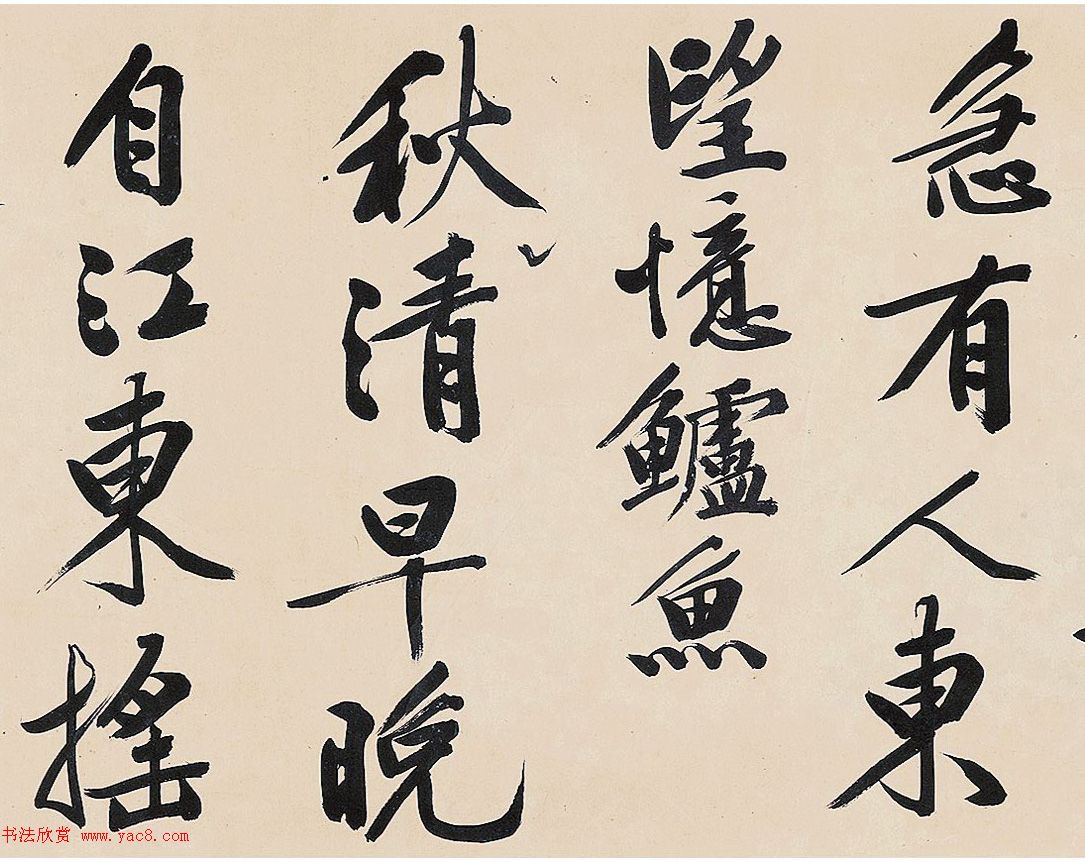 急有人東
望憶鱸魚
秋清早晚
自江東搖
书法欣赏 www.yac8.com